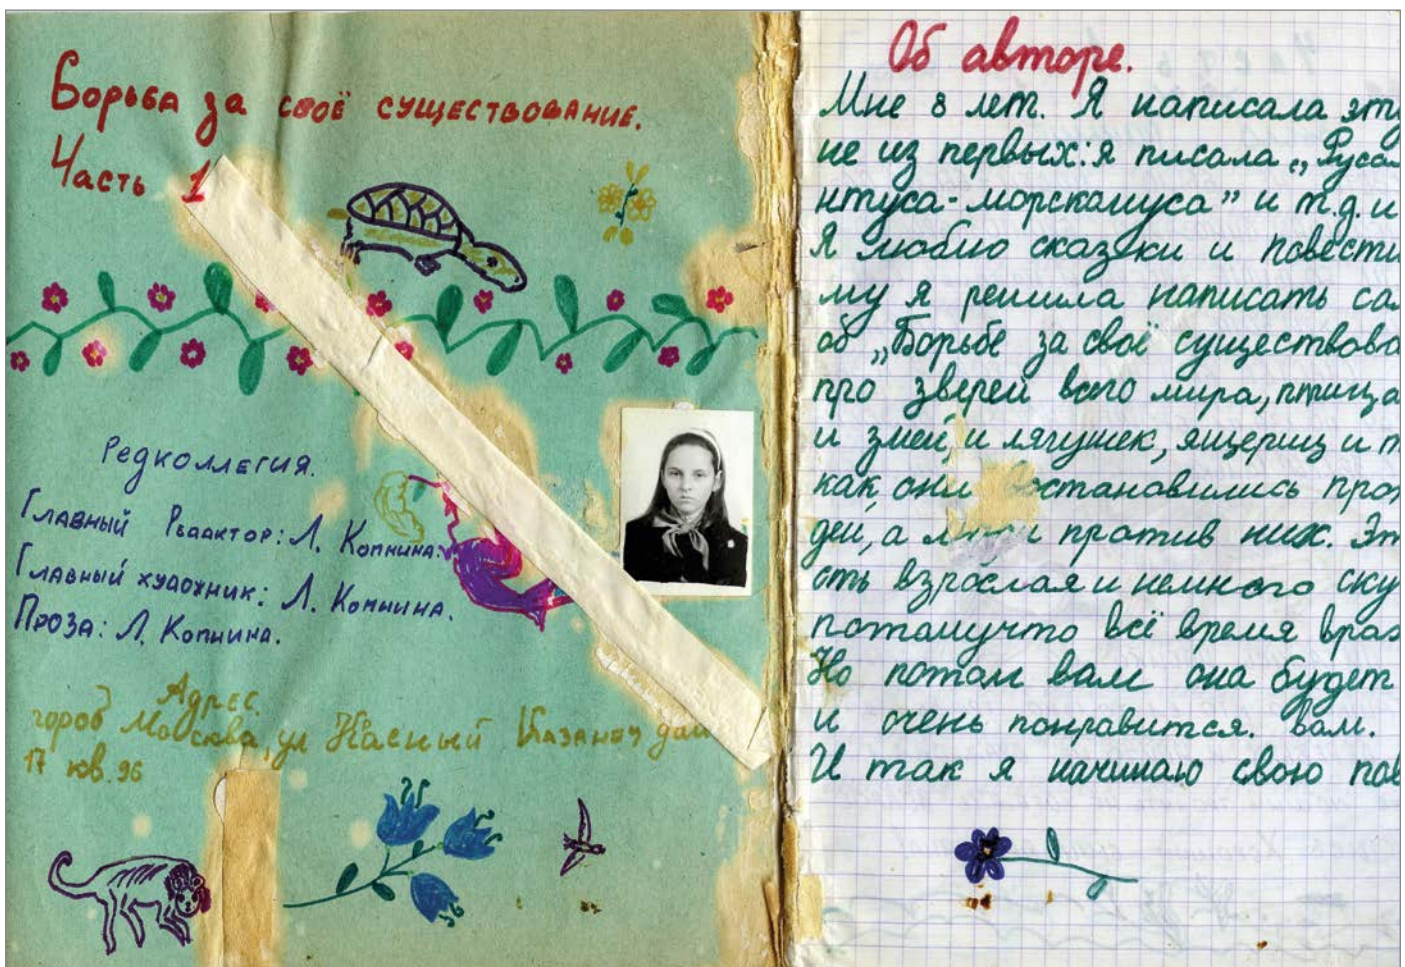 Борьба за своё существование.
Часть 1
Редколлегия.
Главный Редактор: Л. Копнина.
Главный художник: Л. Копнина.
Проза: Л. Копнина.
Адрес.
город Москва, ул Касный Казанец дом
17 кв. 96
Об авторе.
Мне 8 лет. Я написала эту
не из первых: я писала „Руса
нтуса-морскануса” и т.д. и
Я люблю сказски и повести
му я решила написать са
об „Борьбе за своё существова
про зверей всго мира, птица
и змей, и лягушек, ящериц и т
как они остановились про
дей, а люди против них. Эт
сть взрослая и немного ску
потомучто всё время вра
Но потом вам она будет
и очень понравится. вам.
И так я начинаю свою пов